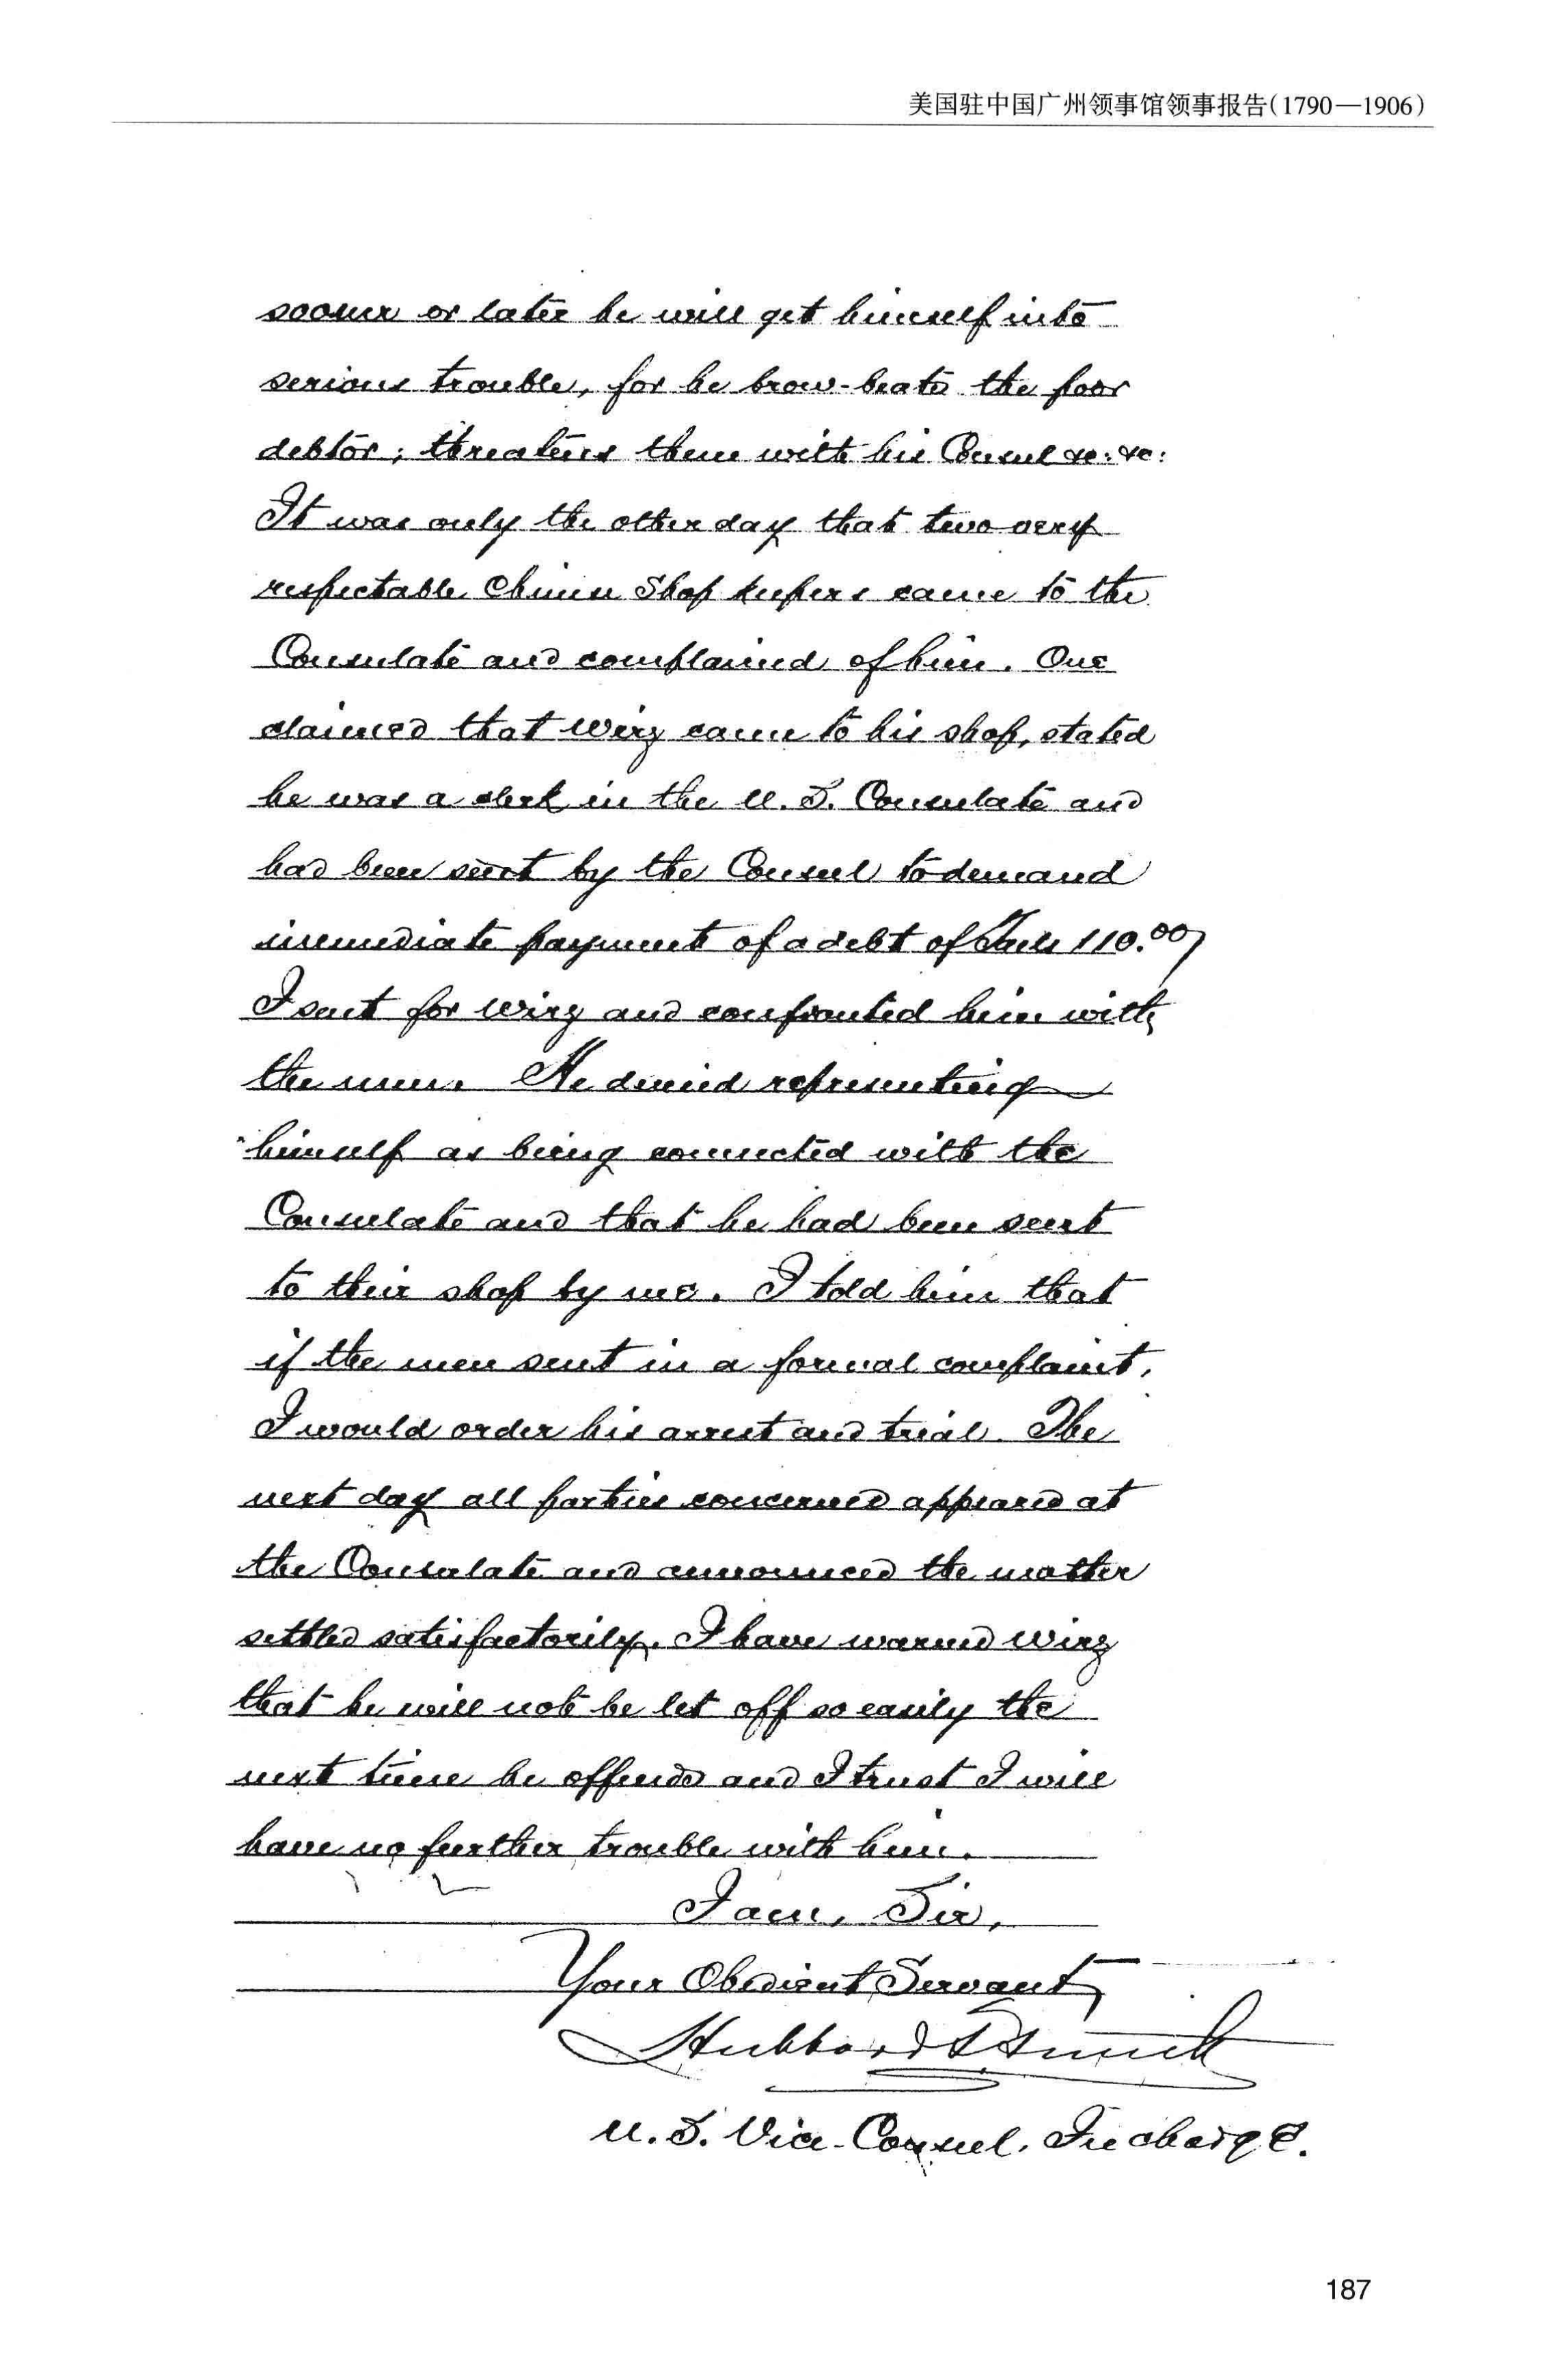 美国驻中国广州领事馆领事报告(1790—1906)
sooner or later he will get himself into
serious trouble, for he brow-beats the poor
debtor; threatens them with his Consul &c: &c:
It was only the other day that two very
respectable Chinese Shop keepers came to the
Consulate and complained of him. One
claimed that Wirz came to his shop, stated
he was a clerk in the U. S. Consulate and
had been sent by the Consul to demand
immediate payment of a debt of Taels 110.00,
I sent for Wirz and confronted him with
the men. He denied representing
himself as being connected with the
Consulate and that he had been sent
to their shop by me. I told him that
if the men sent in a formal complaint,
I would order his arrest and trial. The
next day all parties concerned appeared at
the Consulate and announced the matter
settled satisfactorily. I have warned Wirz
that he will not be let off so easily the
next time he offends and I trust I will
have no further trouble with him.
I am, Sir,
Your Obedient Servant,
Hubbard T. Smith
U. S. Vice-Consul. In charge.
187